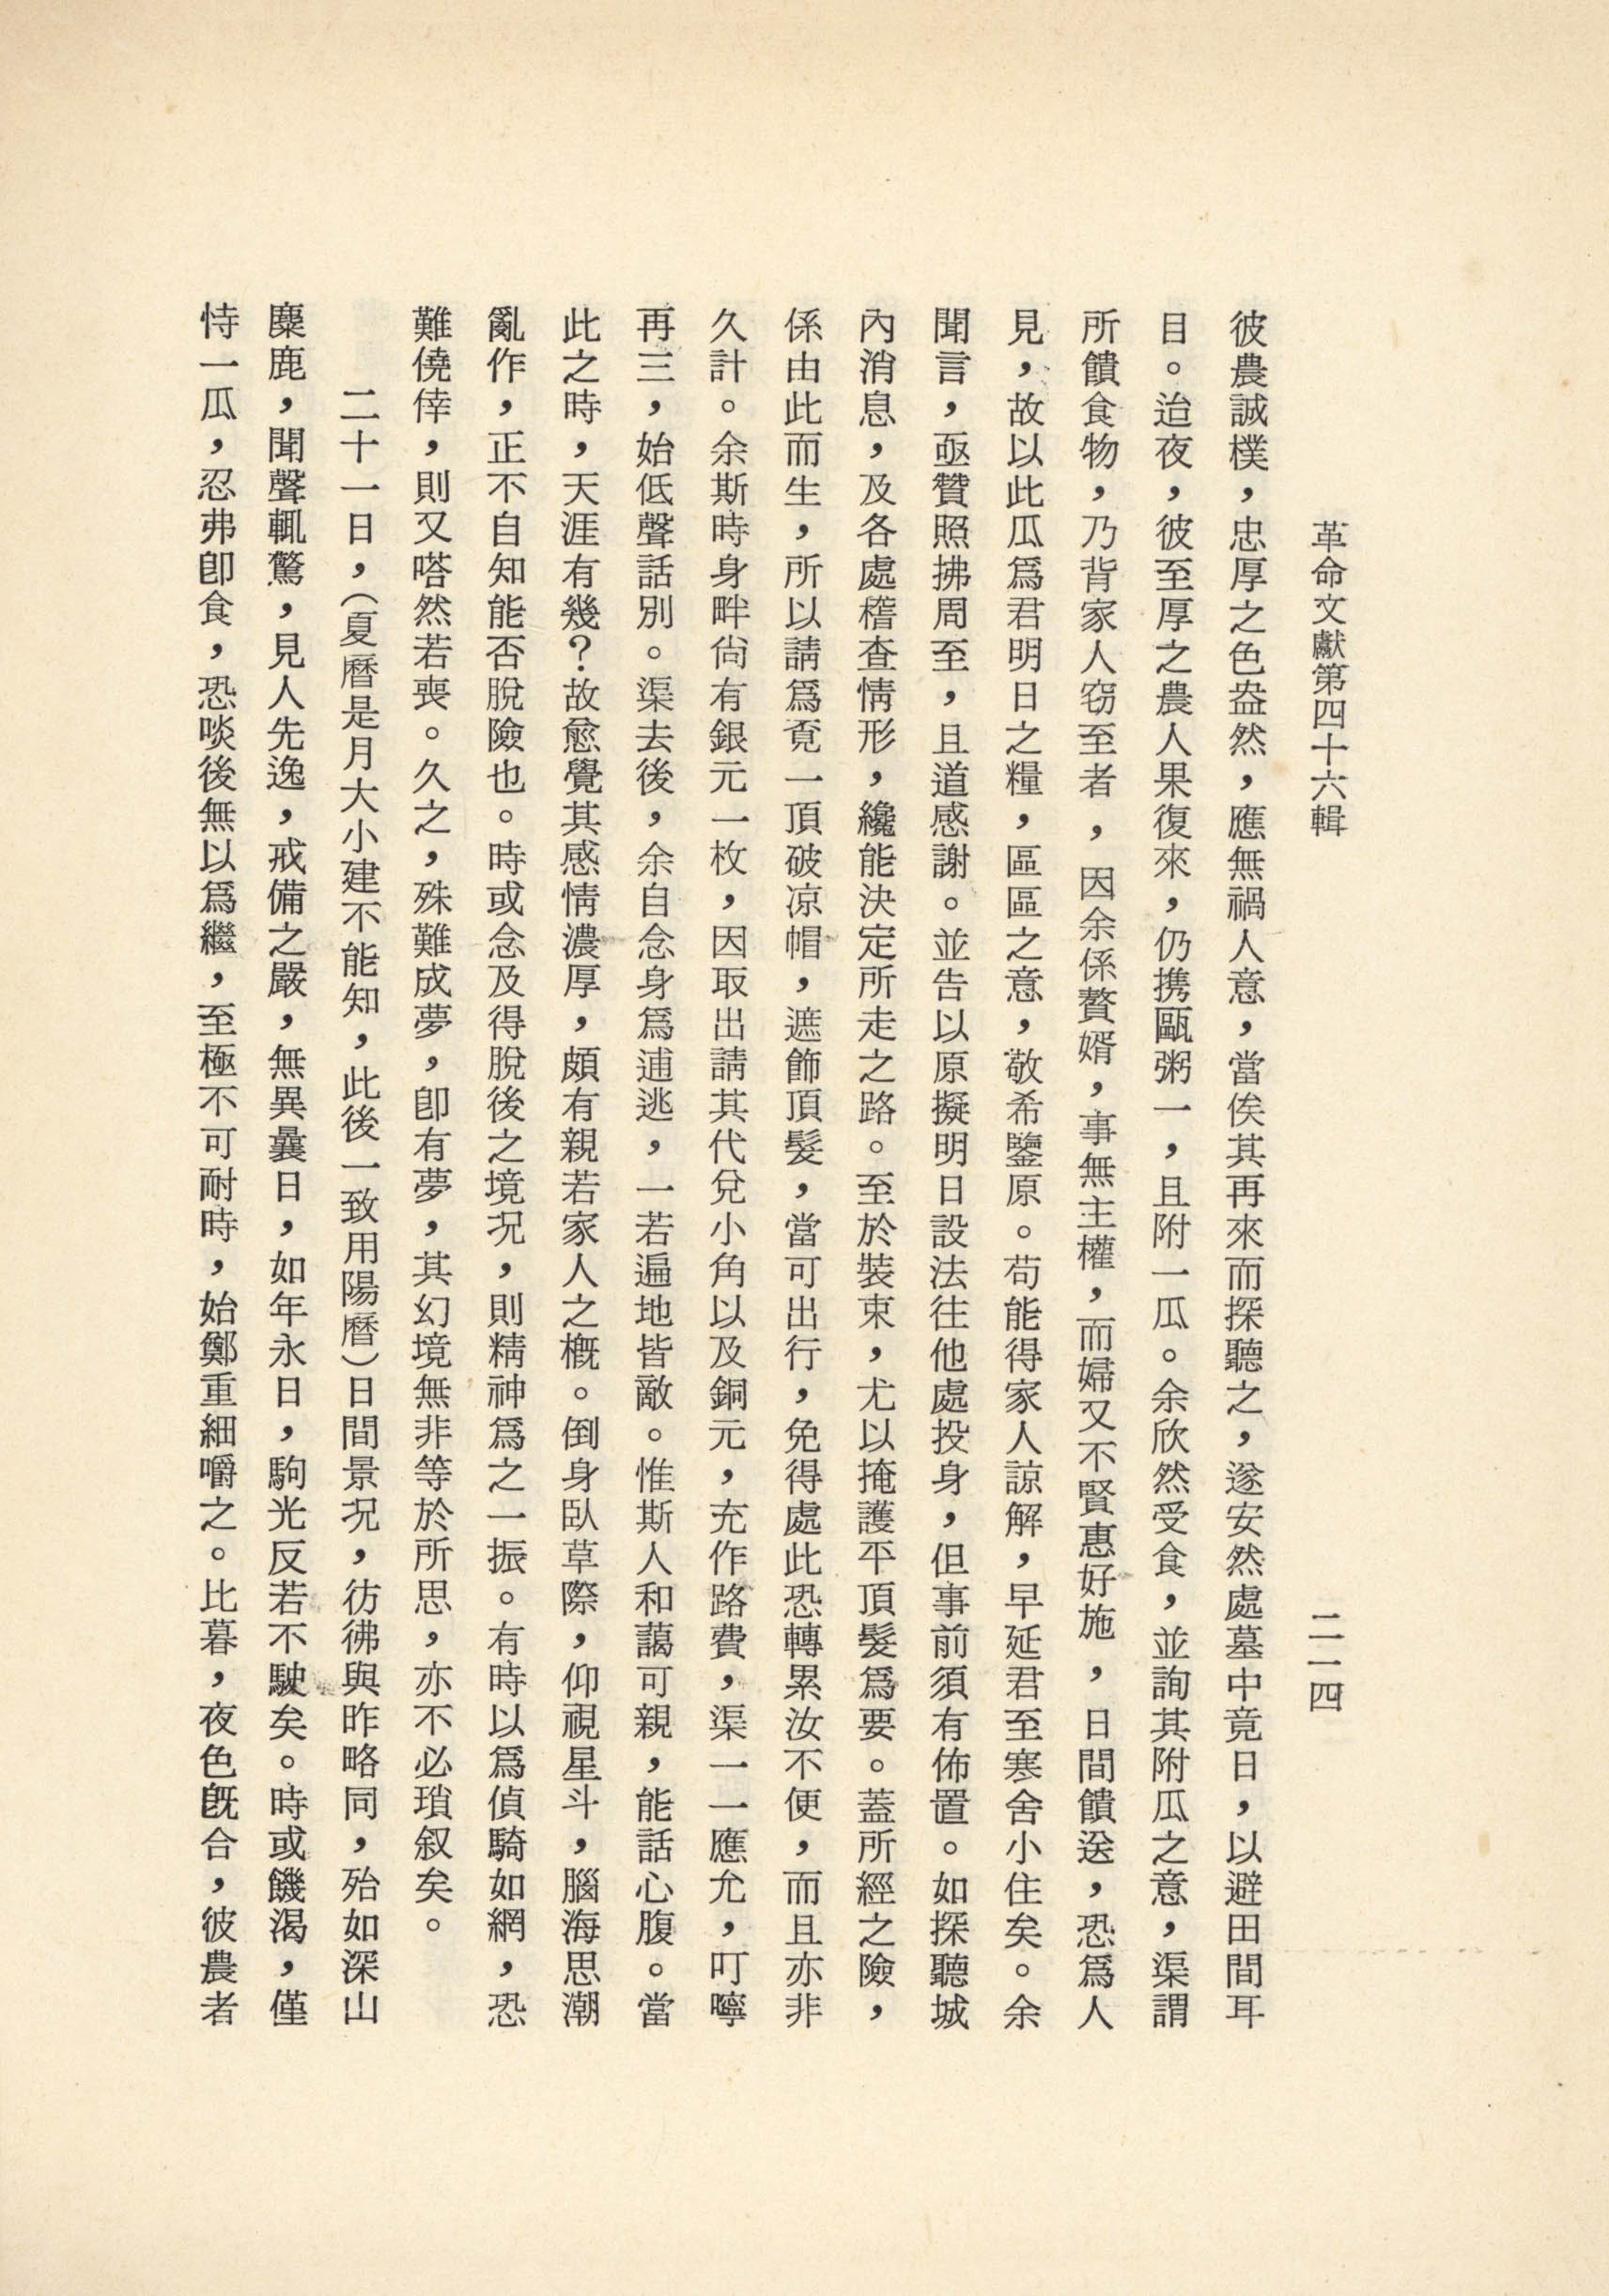 革命文獻第四十六輯
二一四
彼農誠樸，忠厚之色盎然，應無禍人意，當俟其再來而探聽之，遂安然處墓中竟日，以避田間耳
目。迨夜，彼至厚之農人果復來，仍携甌粥一，且附一瓜。余欣然受食，並詢其附瓜之意，渠謂
所饋食物，乃背家人窃至者，因余係贅婿，事無主權，而婦又不賢惠好施，日間饋送，恐爲人
見，故以此瓜爲君明日之糧，區區之意，敬希鑒原。苟能得家人諒解，早延君至寒舍小住矣。余
聞言，亟贊照拂周至，且道感謝。並告以原擬明日設法往他處投身，但事前須有佈置。如探聽城
內消息，及各處稽查情形，纔能決定所走之路。至於裝束，尤以掩護平頂髮爲要。蓋所經之險，
係由此而生，所以請爲覓一頂破凉帽，遮飾頂髮，當可出行，免得處此恐轉累汝不便，而且亦非
久計。余斯時身畔尙有銀元一枚，因取出請其代兌小角以及銅元，充作路費，渠一一應允，叮嚀
再三，始低聲話別。渠去後，余自念身爲逋逃，一若遍地皆敵。惟斯人和藹可親，能話心腹。當
此之時，天涯有幾？故愈覺其感情濃厚，頗有親若家人之概。倒身臥草際，仰視星斗，腦海思潮
亂作，正不自知能否脫險也。時或念及得脫後之境况，則精神爲之一振。有時以爲偵騎如網，恐
難僥倖，則又嗒然若喪。久之，殊難成夢，卽有夢，其幻境無非等於所思，亦不必瑣叙矣。
二十一日，（夏曆是月大小建不能知，此後一致用陽曆）日間景况，彷彿與昨略同，殆如深山
麋鹿，聞聲輒驚，見人先逸，戒備之嚴，無異曩日，如年永日，駒光反若不駛矣。時或饑渴，僅
恃一瓜，忍弗卽食，恐啖後無以爲繼，至極不可耐時，始鄭重細嚼之。比暮，夜色旣合，彼農者